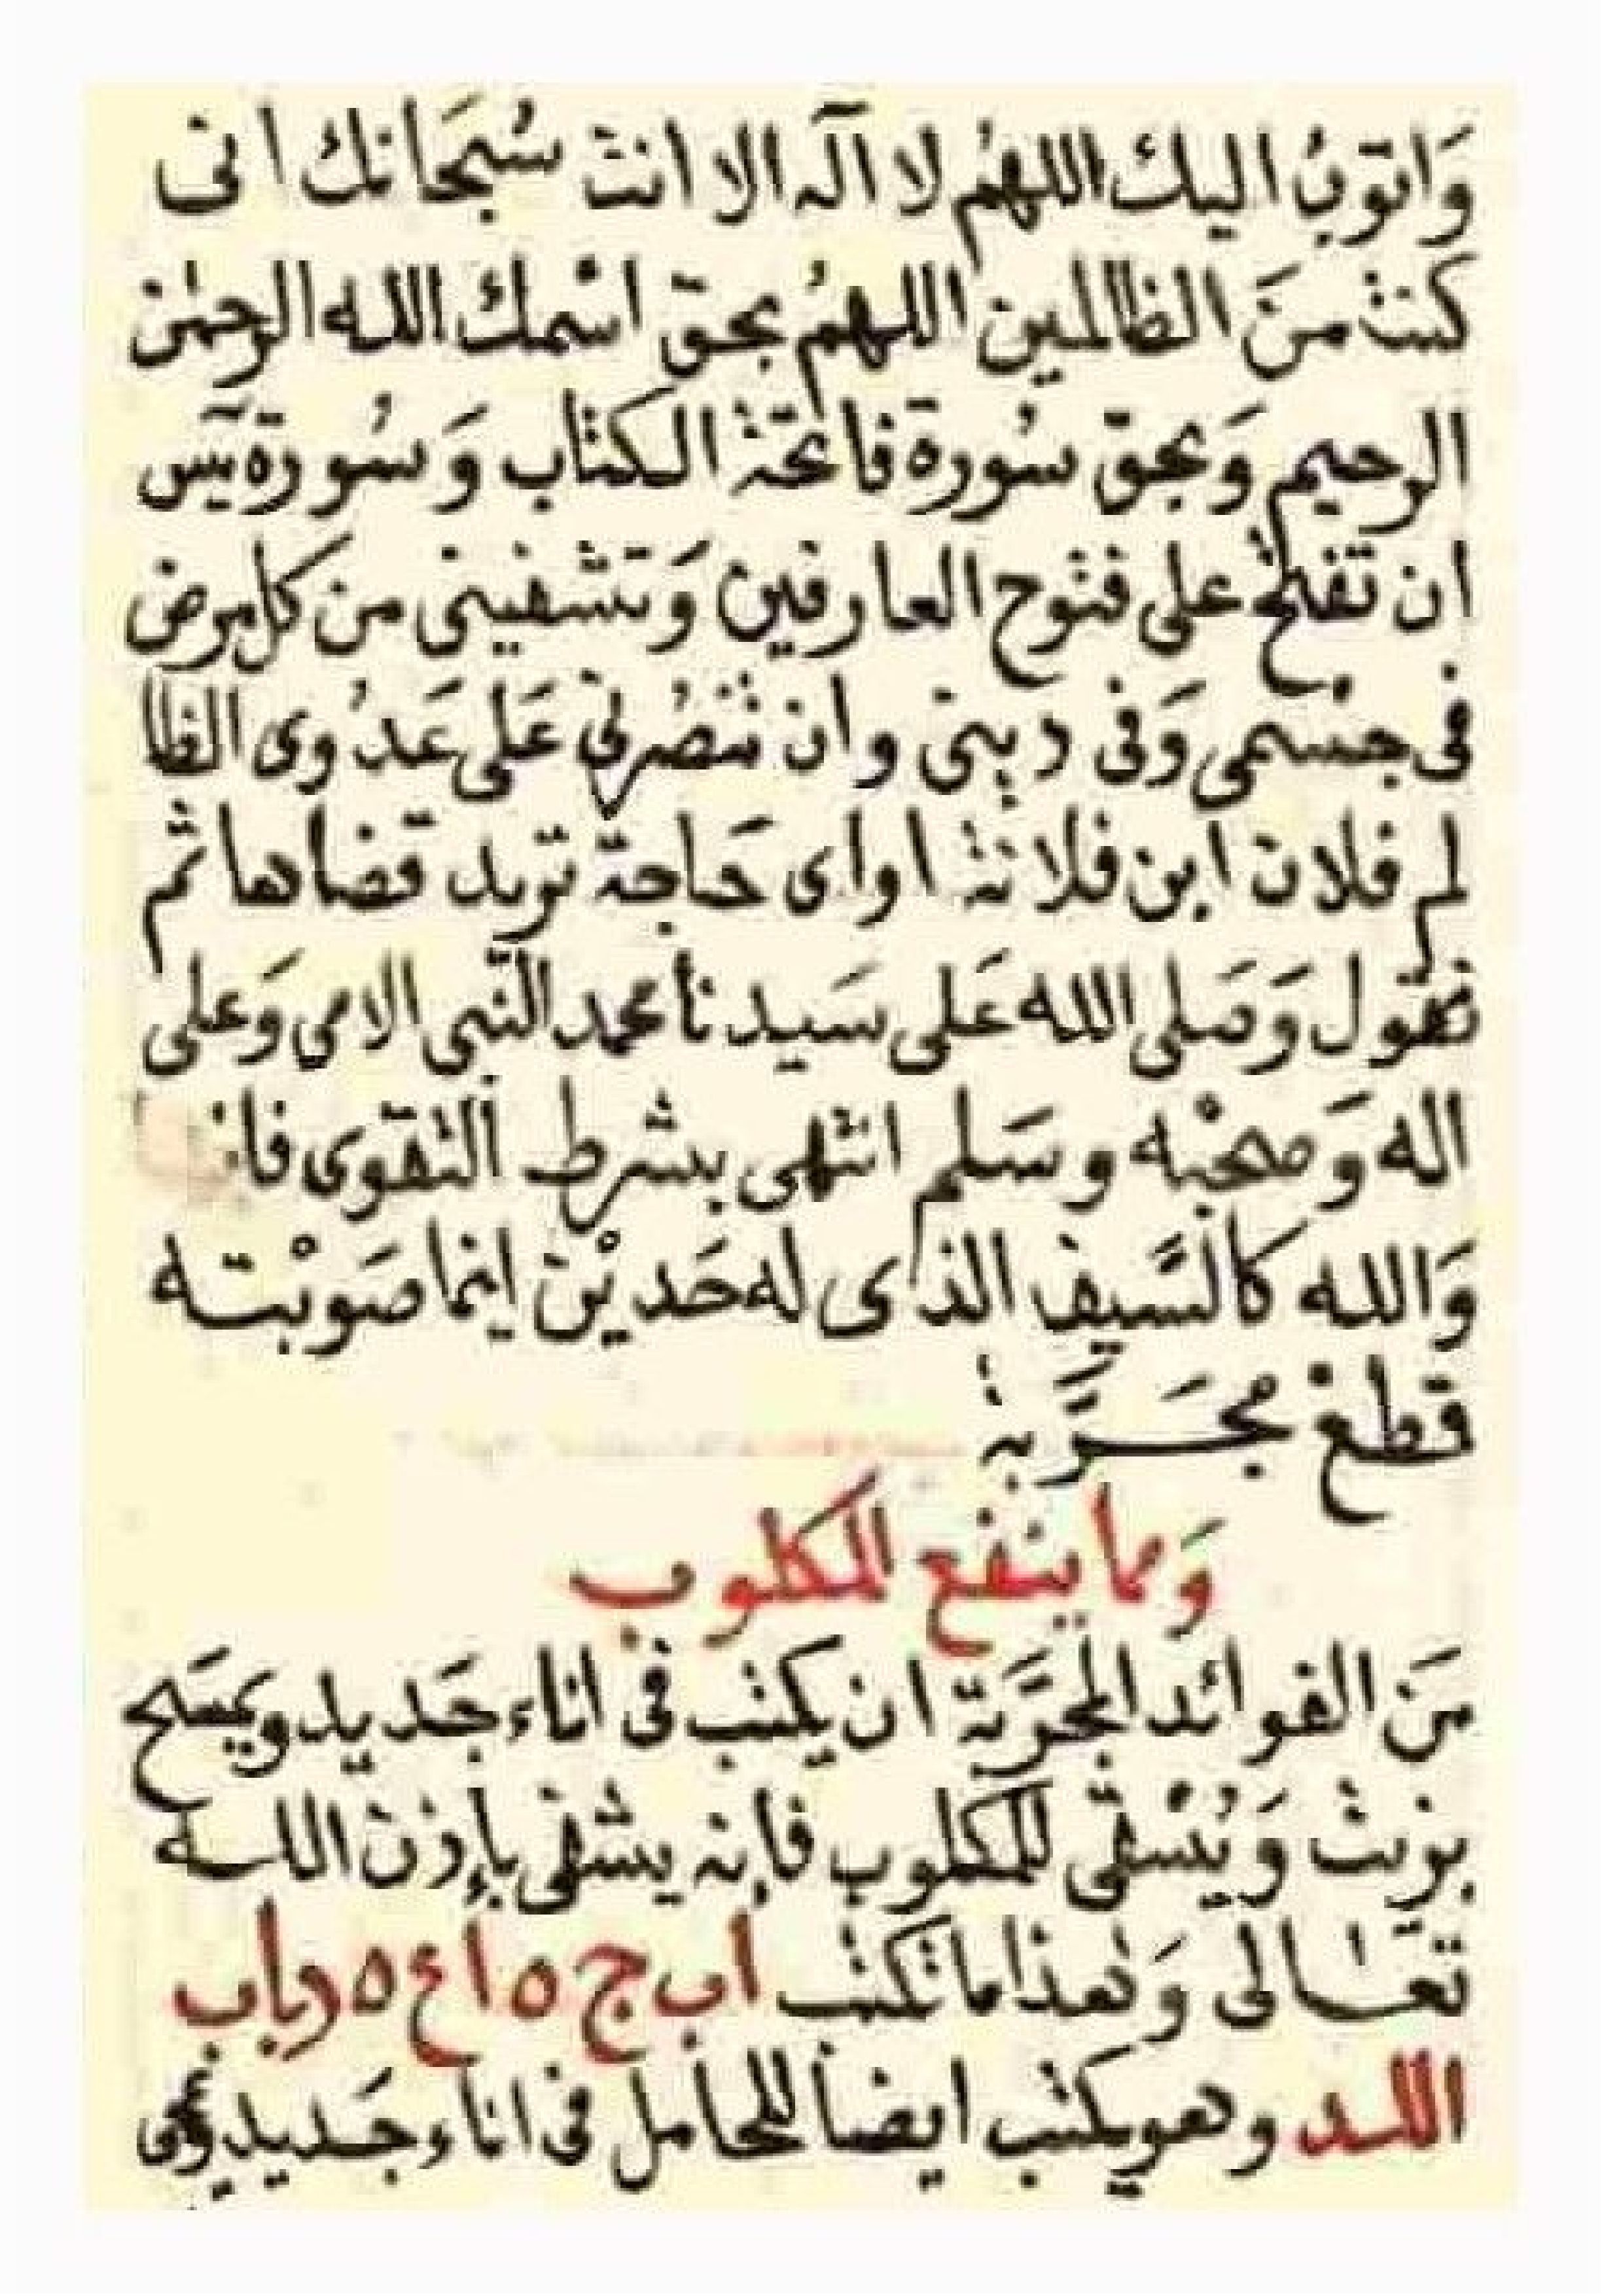 وَاتوبُ اليك اللهُم لا آله الا انت سُبحَانك انى
كنت منَ الظالمين اللهمُ بحق اسْمك الله الرحمن
الرحيم وَبحق سُورة فاتحة الكتاب وَسُورة يٓس
ان تفتح على فتوح العارفين وَتشفينى من كل مرض
فى جسمى وَفى دينى وان تنصُرنى عَلى عَدُوى الظا
لم فلان ابن فلانة اواى حَاجة تريد قضاها ثم
تقول وَصَلى الله عَلى سَيدنا محمد النّبى الامى وَعلى
اله وَصحْبه وسَلم انتهى بشرط التقوى فا
وَالله كالسَّيف الذى له حَديْن اينما صَوبْته
قطع مجَرَّبة
وَمما ينفع المكلوب
مَن الفوائد المجَرَّبة ان يكتب فى اناء جَديد ويمسَح
بزيت وَيُسْقى للمكلوب فانه يشفى بإذن اللــه
تعَــالى وَهذا ما تكتب اب ج ٥ ا ع ٥ رباب
اللــد وهو يكتب ايضا للحامل فى اناء جَديد